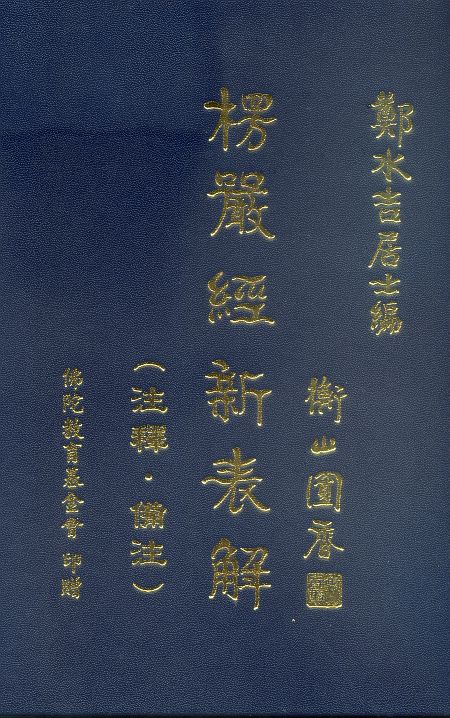 鄭水吉居士編
衡山圓香
楞嚴經新表解
（注釋·備注）
佛陀教育基金會 印贈